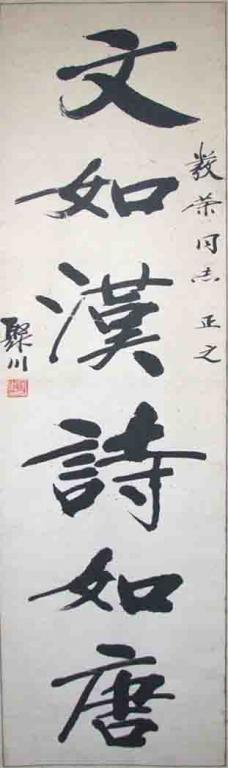 文如漢詩如唐
敬荣同志正之
聚川